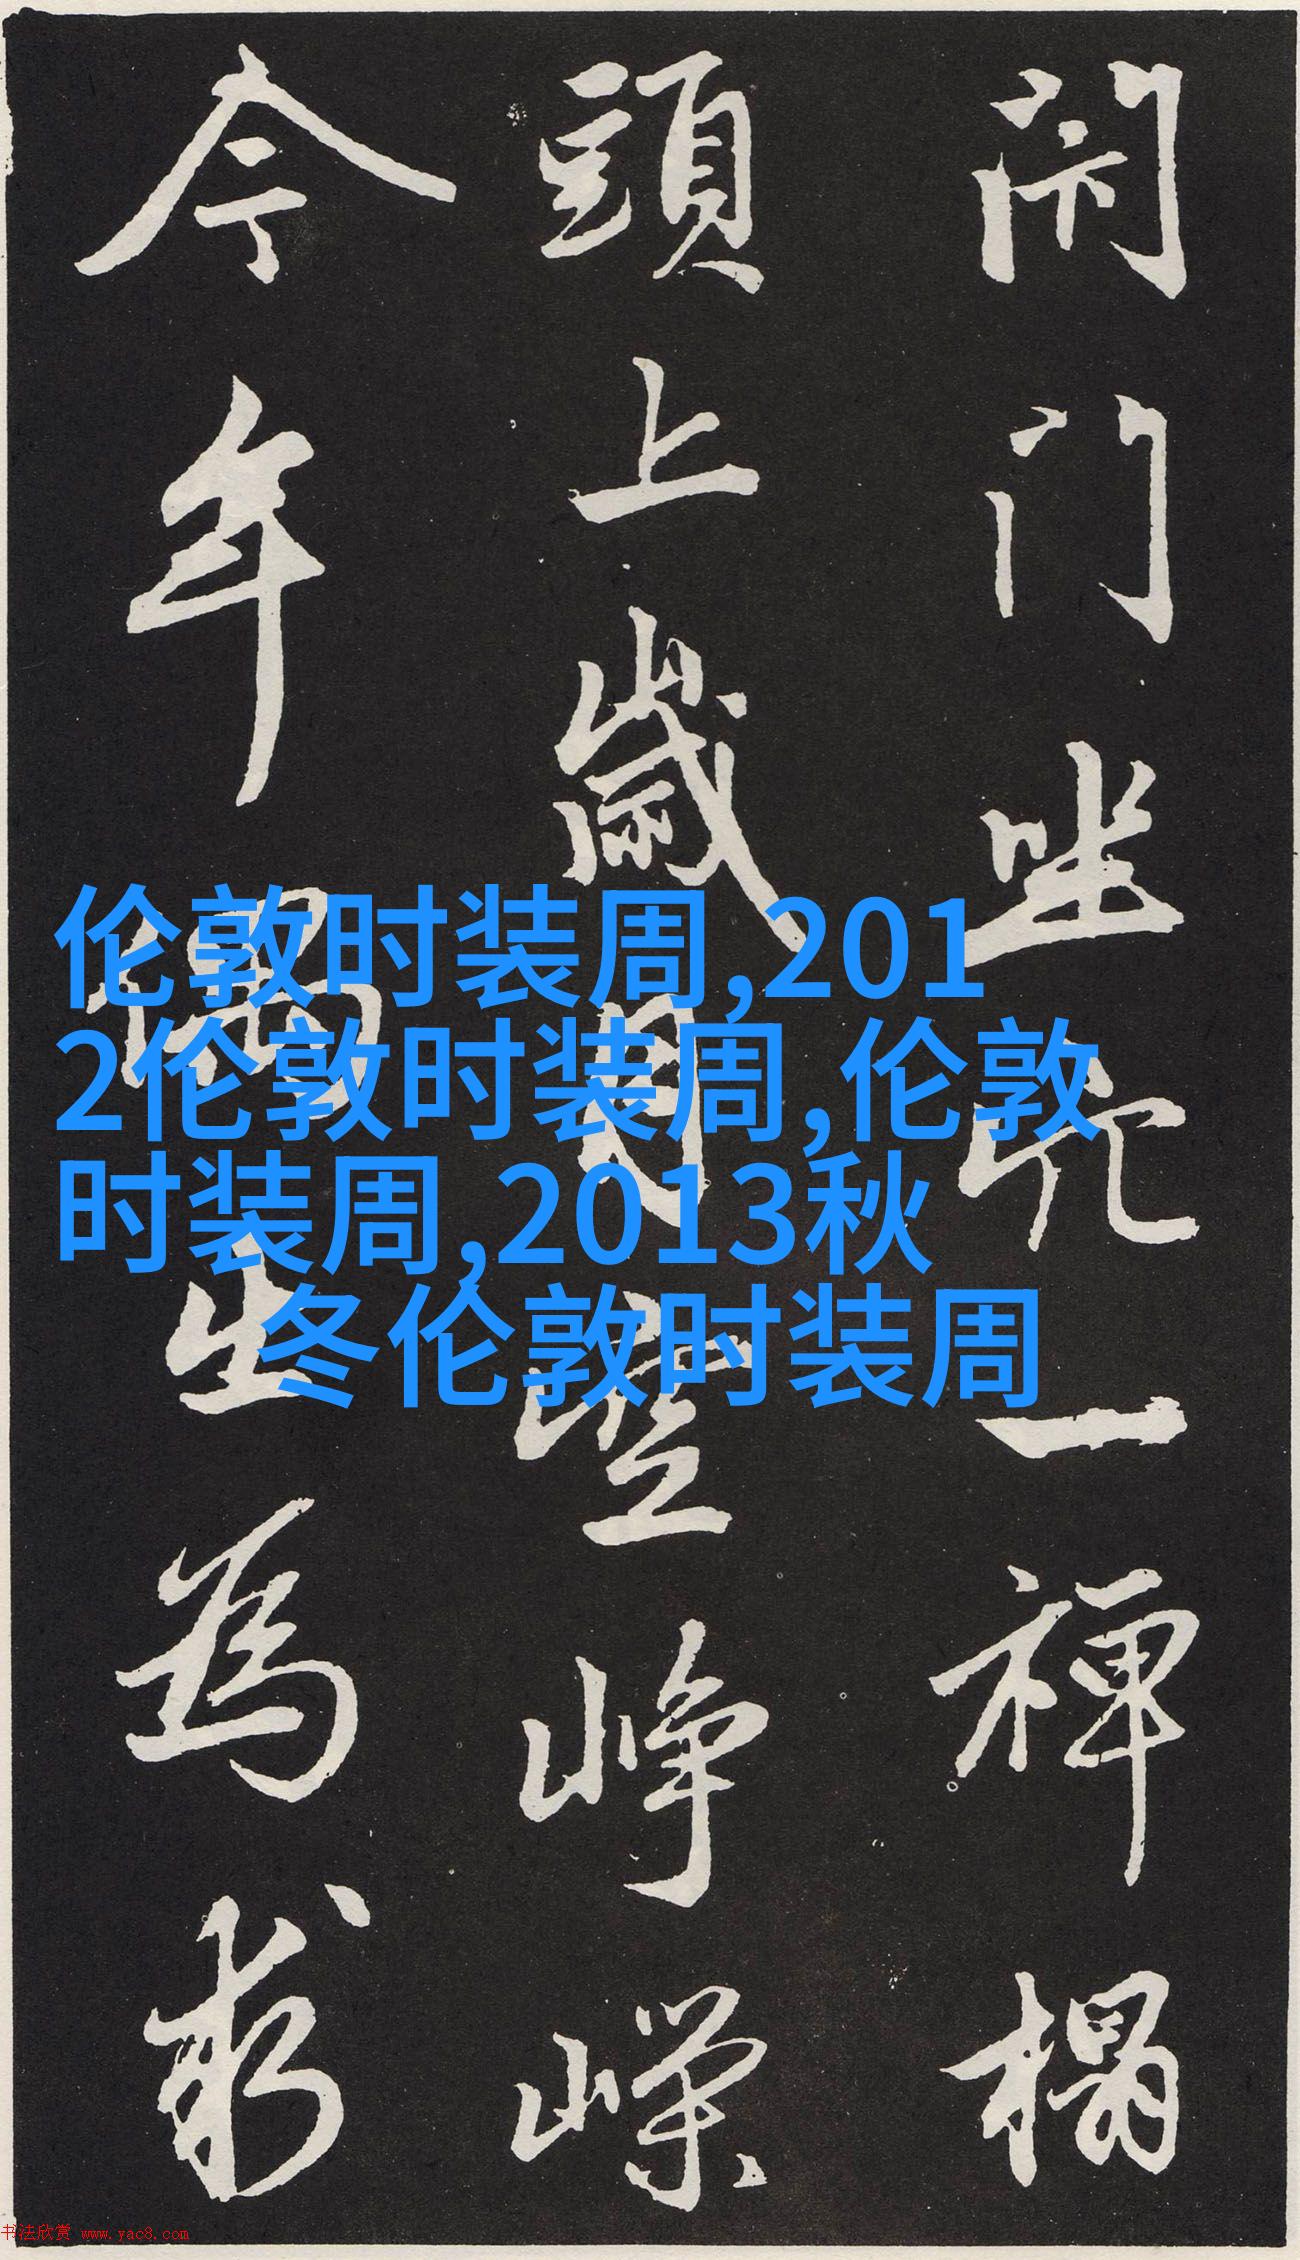 闹门坐穴一禅榻
頭上歲月空峥嵘
今年偶出為求
伦敦时装周,201
2伦敦时装周,伦敦
时装周,2013秋
冬伦敦时装周
书法欣赏 www.yac8.com